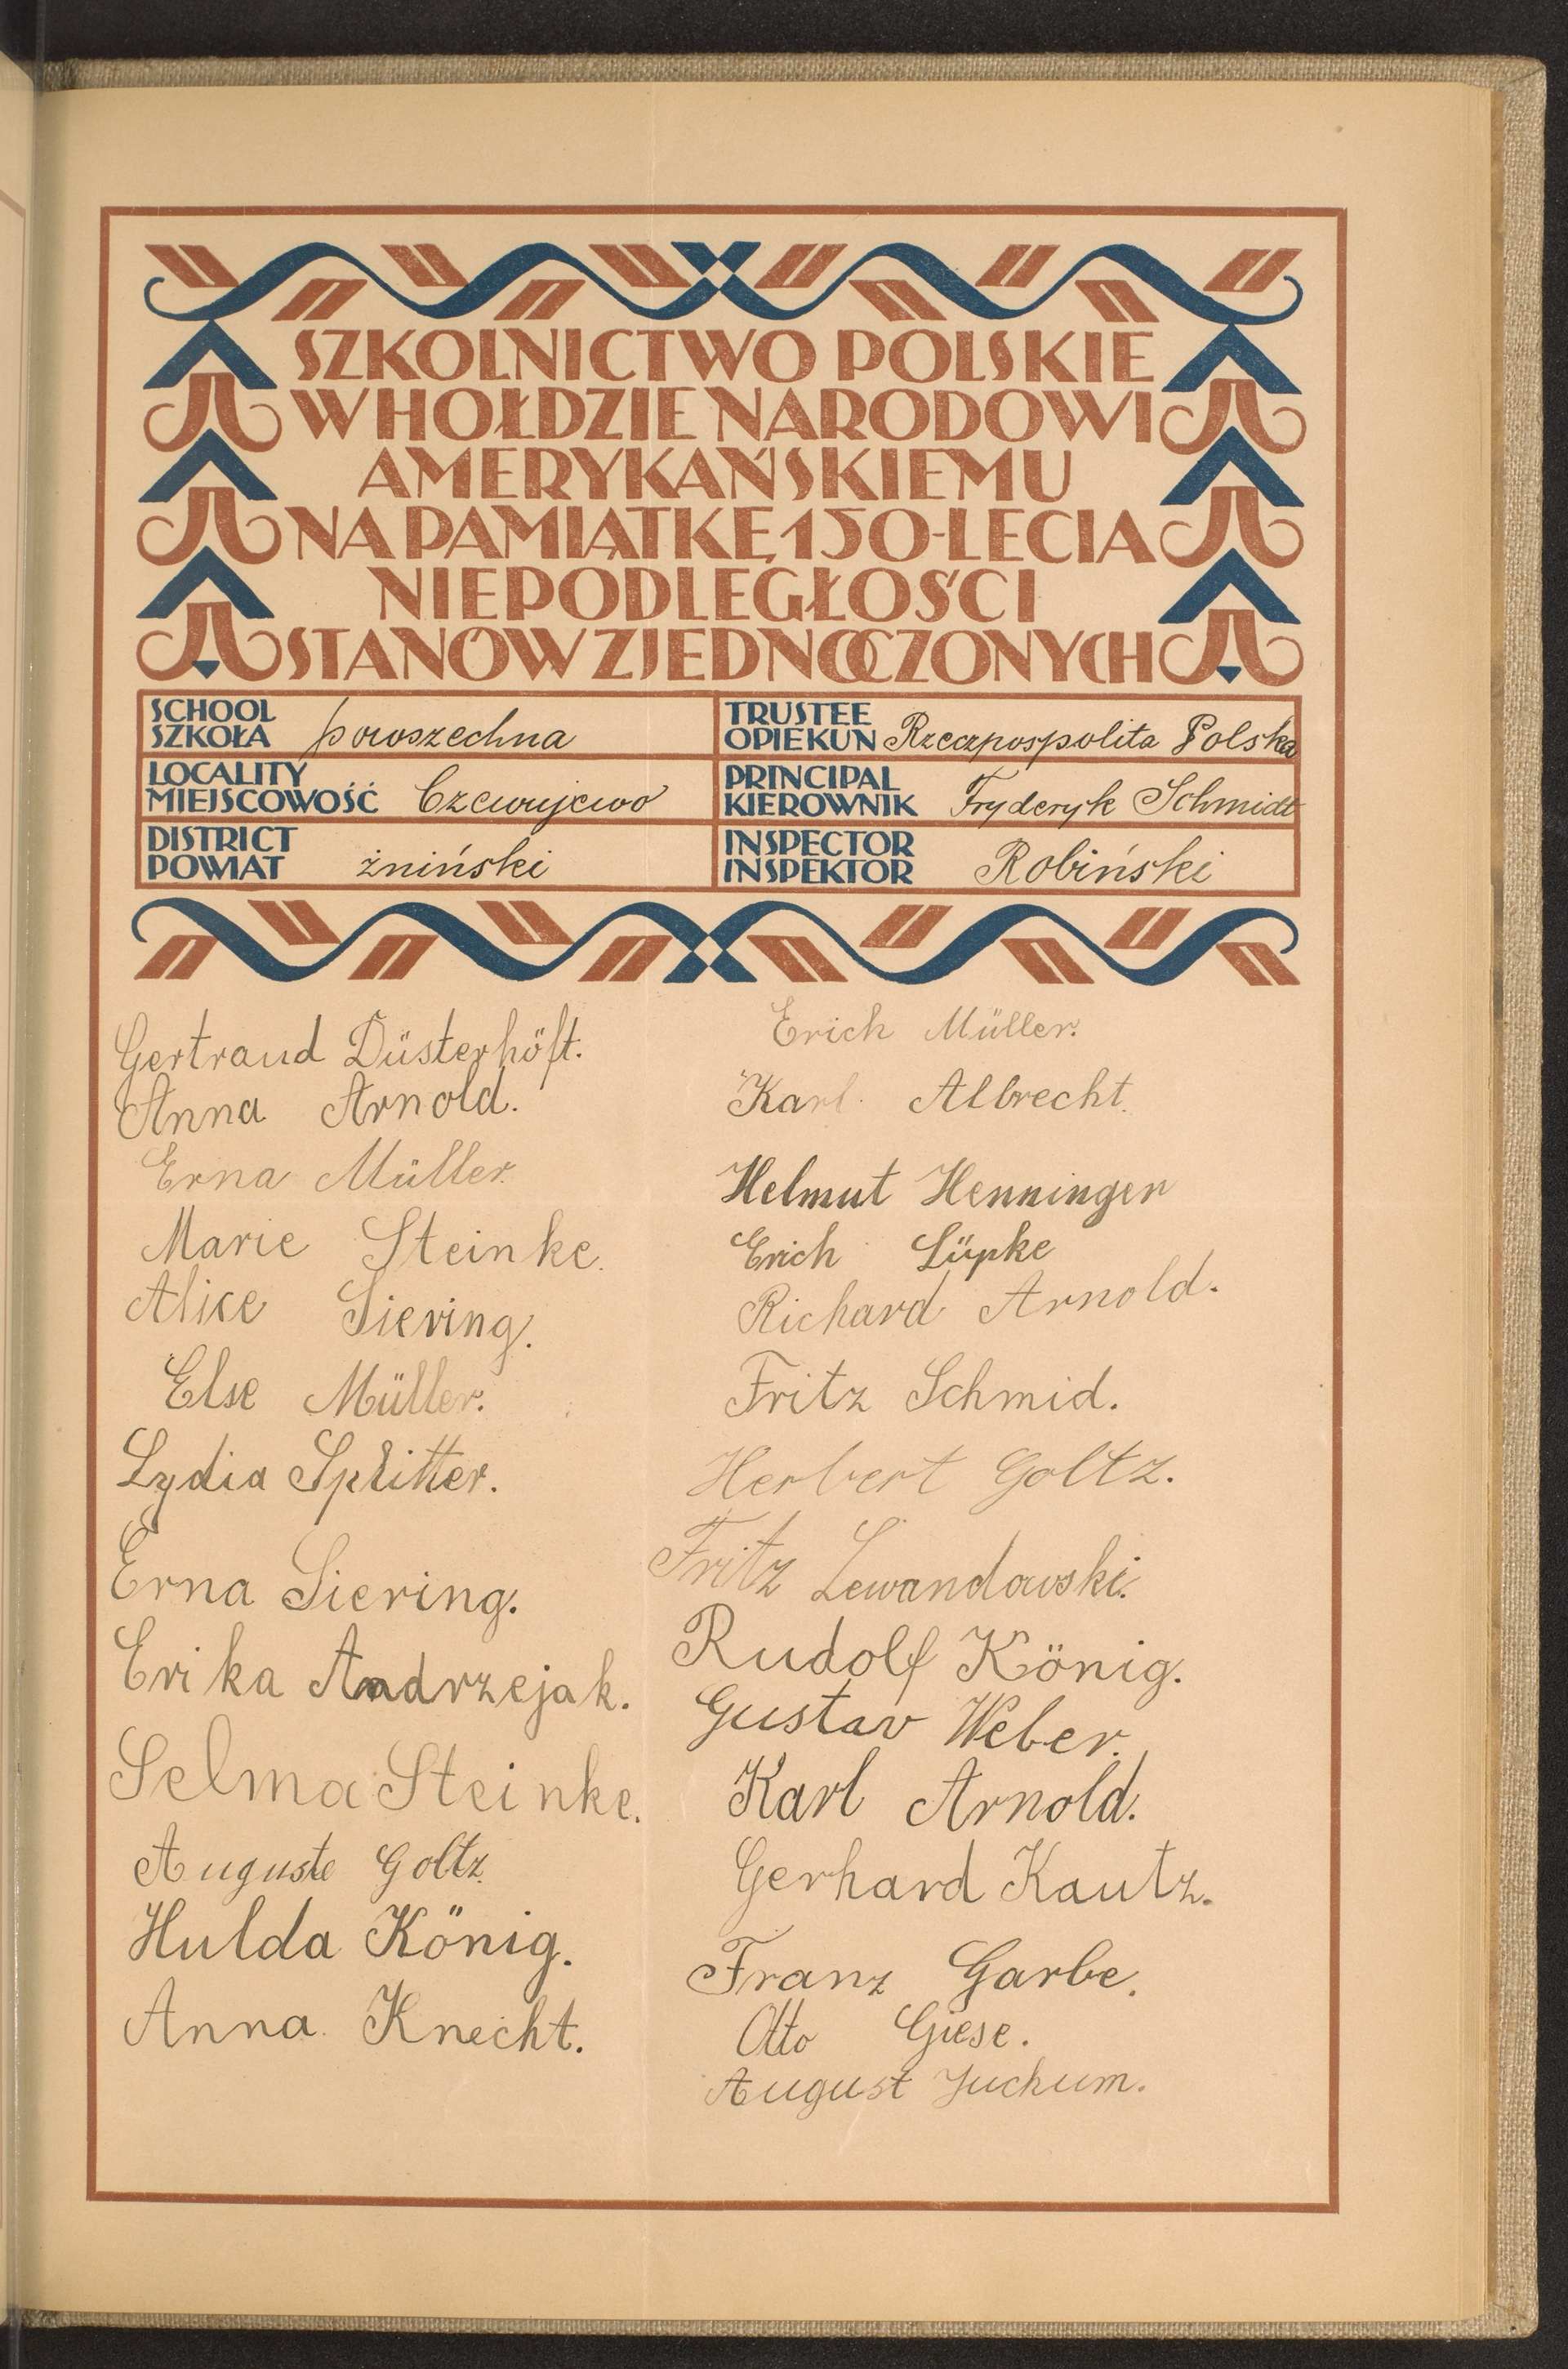 SZKOLNICTWO POLSKIE
W HOŁDZIE NARODOWI
AMERYKAŃSKIEMU
NA PAMIĄTKĘ 150-LECIA
NIEPODLEGŁOŚCI
STANÓW ZJEDNOCZONYCH
SCHOOL
SZKOŁA powszechna
LOCALITY
MIEJSCOWOŚĆ Czewujewo
DISTRICT
POWIAT żniński
TRUSTEE
OPIEKUN Rzeczpospolita Polska
PRINCIPAL
KIEROWNIK Fryderyk Schmidt
INSPECTOR
INSPEKTOR Robiński
Gertraud Düsterhöft.
Anna Arnold.
Erna Müller.
Marie Steinke.
Alice Siering.
Else Müller.
Lydia Splitter.
Erna Siering.
Erika Andrzejak.
Selma Steinke.
Auguste Goltz.
Hulda König.
Anna Knecht.
Erich Müller.
Karl Albrecht.
Helmut Henninger
Erich Lüpke
Richard Arnold.
Fritz Schmid.
Herbert Goltz.
Fritz Lewandowski.
Rudolf König.
Gustav Weber.
Karl Arnold.
Gerhard Kautz.
Franz Garbe.
Otto Giese.
August Juchum.